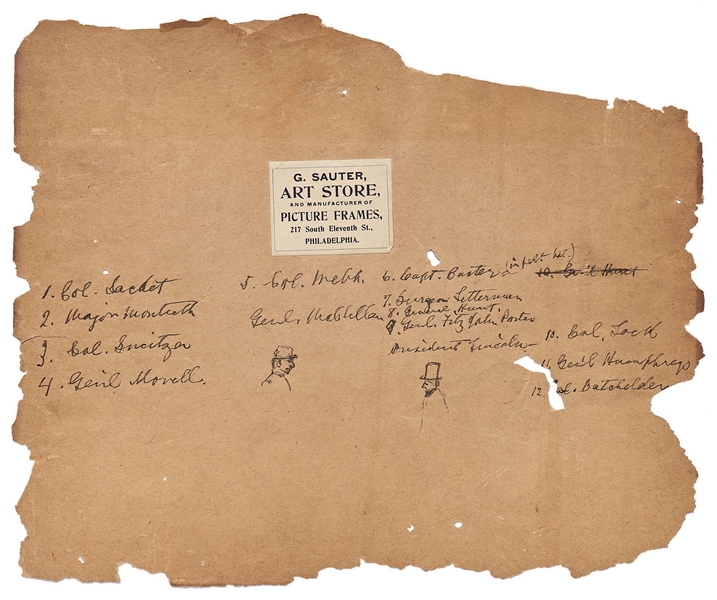 G. SAUTER,
ART STORE,
AND MANUFACTURER OF
PICTURE FRAMES,
217 South Eleventh St.,
PHILADELPHIA.
1. Col. Sacket
2. Major Monteith
3. Col. Sweitzer
4. Genl Morell.
5. Col. Webb.
Genl. McClellan
6. Capt. Custer (in felt hat.)
7. Surgeon Letterman
8. General Hunt.
9. Genl. Fitz John Porter
President Lincoln
10. Genl Hunt
10. Col. Lock
11. Genl Humphreys
12. Col. Batchelder